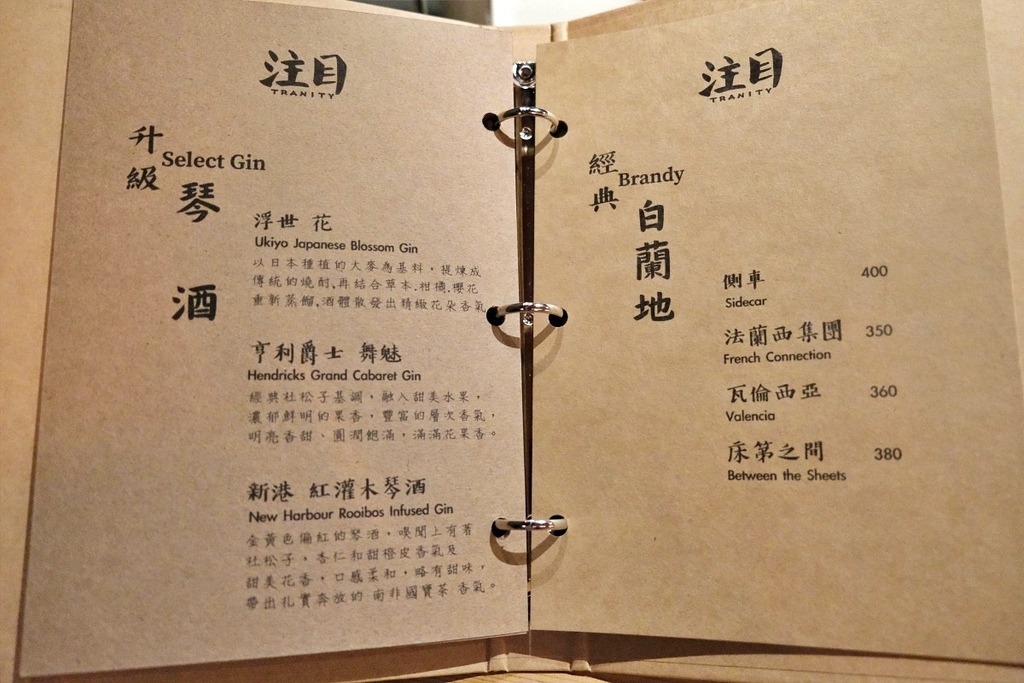 注目
TRANITY
升級
Select Gin
琴酒
浮世 花
Ukiyo Japanese Blossom Gin
以日本種植的大麥為基料，提煉成
傳統的燒酎,再結合草本.柑橘.櫻花
重新蒸餾,酒體散發出精緻花朵香氣
亨利爵士 舞魅
Hendricks Grand Cabaret Gin
經典杜松子基調，融入甜美水果，
濃郁鮮明的果香，豐富的層次香氣，
明亮香甜、圓潤飽滿，滿滿花果香。
新港 紅灌木琴酒
New Harbour Rooibos Infused Gin
金黃色偏紅的琴酒，嗅聞上有著
杜松子，杏仁和甜橙皮香氣及
甜美花香，口感柔和，略有甜味，
帶出扎實奔放的 南非國寶茶 香氣。
注目
TRANITY
經典
Brandy
白蘭地
側車 400
Sidecar
法蘭西集團 350
French Connection
瓦倫西亞 360
Valencia
床第之間 380
Between the Sheets